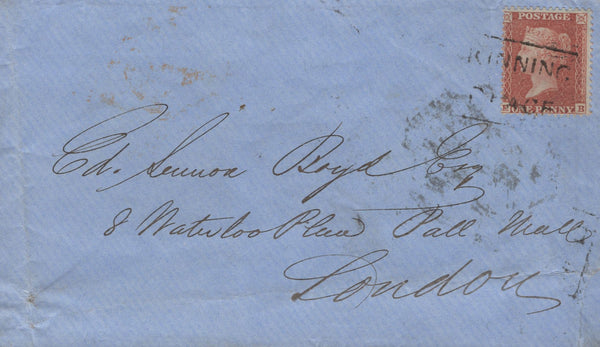 POSTAGE
KINNING
PLACE
ONE PENNY
B
Ed. Lennox Boyd Esq
8 Waterloo Place Pall Mall
London